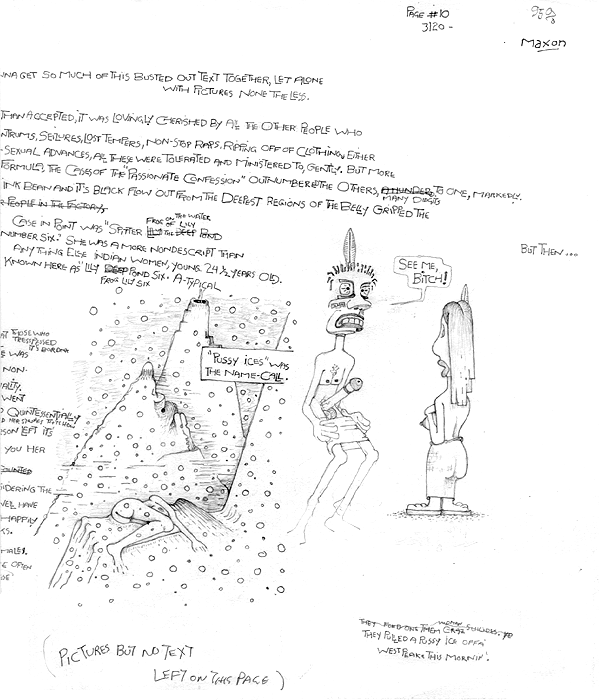 PAGE #10
3/20 -
Maxon
NNA GET SO MUCH OF THIS BUSTED OUT TEXT TOGETHER, LET ALONE
WITH PICTURES NONE THE LESS.
THAN ACCEPTED, IT WAS LOVINGLY CHERISHED BY ALL THE OTHER PEOPLE WHO
NTRUMS, SEIZURES, LOST TEMPERS, NON-STOP RAPS, RIPPING OFF OF CLOTHING, EITHER
SEXUAL ADVANCES, ALL THESE WERE TOLERATED AND MINISTERED TO, GENTLY. BUT MORE
FORMULA, THE CASES OF THE "PASSIONATE CONFESSION" OUTNUMBERED THE OTHERS, A HUNDRED TO ONE, MARKEDLY.
MANY DIGITS
INK BEAN AND IT'S BLACK FLOW OUT FROM THE DEEPEST REGIONS OF THE BELLY GRIPPED THE
R PEOPLE IN THE FACTORY.
FROG ON THE WATER
OF LILY
CASE IN POINT WAS "SPATTER THE DEEP POND
NUMBER SIX." SHE WAS A MORE NONDESCRIPT THAN
ANYTHING ELSE INDIAN WOMEN, YOUNG. 24 1/2 YEARS OLD.
KNOWN HERE AS "LILY DEEP POND SIX. A-TYPICAL
FROG LILY SIX
BUT THEN...
SEE ME,
BITCH!
"PUSSY ICES" WAS
THE NAME-CALL.
AT THOSE WHO
TRESPASSED
IT'S BORDERS
E WAS
NON-
ALITY.
WENT
QUINTESSENTIALLY
SON LEFT ITS
YOU HER
OUNTED
SIDERING THE
VEL HAVE
HAPPILY
KS.
MALES.
E OPEN
THEY PULLED A PUSSY ICE OFFA
WEST PEAKE THIS MORNIN'.
(PICTURES BUT NO TEXT
LEFT ON THIS PAGE)